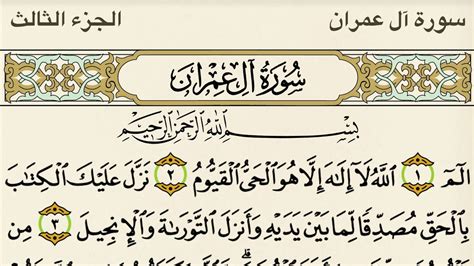 سورة آل عمران الجزء الثالث
سُورَةُ آلِ عِمْرَانَ
بِسْمِ اللَّهِ الرَّحْمَٰنِ الرَّحِيمِ
الٓمٓ ١ ٱللَّهُ لَآ إِلَٰهَ إِلَّا هُوَ ٱلْحَىُّ ٱلْقَيُّومُ ٢ نَزَّلَ عَلَيْكَ ٱلْكِتَٰبَ
بِٱلْحَقِّ مُصَدِّقًا لِّمَا بَيْنَ يَدَيْهِ وَأَنزَلَ ٱلتَّوْرَىٰةَ وَٱلْإِنجِيلَ ٣ مِن